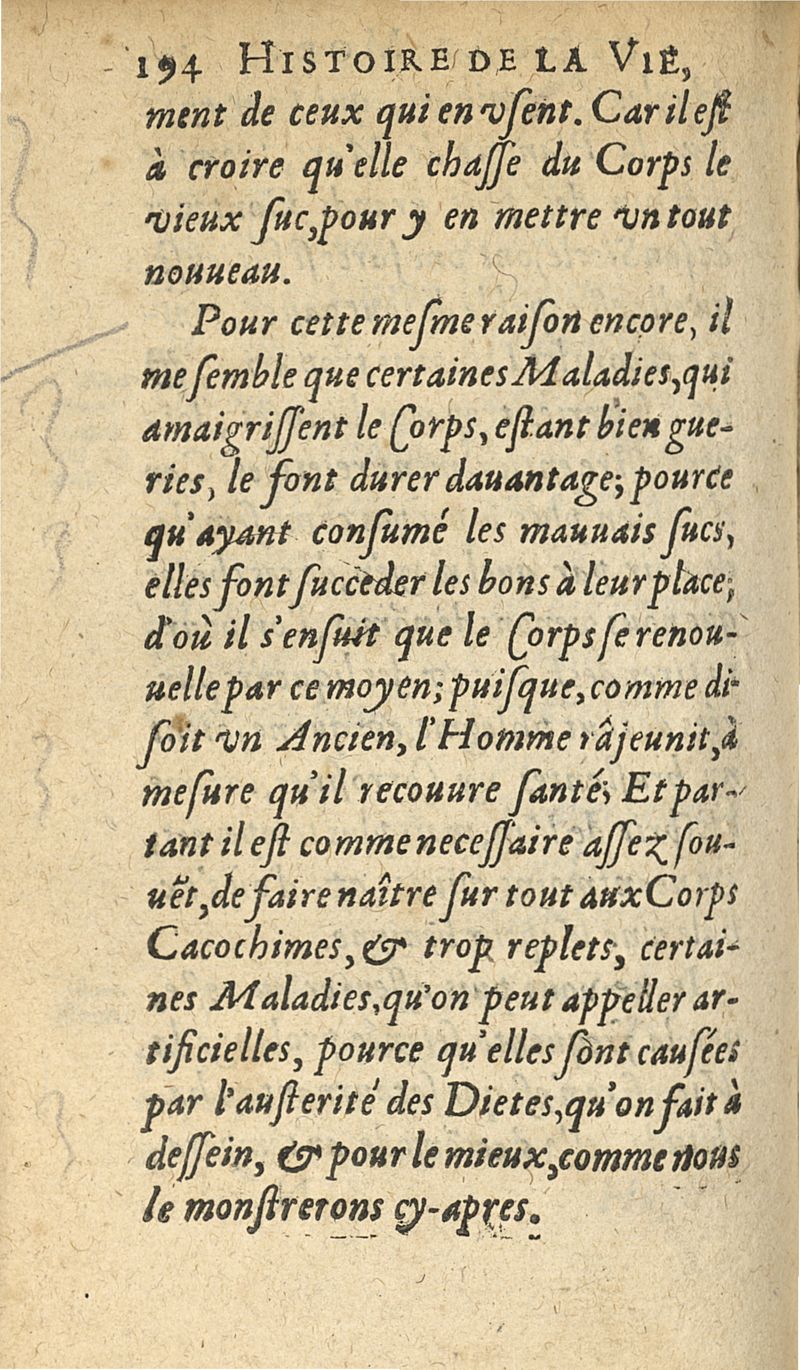 194 HISTOIRE DE LA VIE,
ment de ceux qui en vſent. Car il eſt
à croire qu'elle chaſſe du Corps le
vieux ſuc, pour y en mettre vn tout
nouueau.
Pour cette meſme raiſon encore, il
me ſemble que certaines Maladies, qui
amaigriſſent le Corps, eſtant bien gue-
ries, le font durer dauantage; pource
qu'ayant conſumé les mauuais ſucs,
elles font ſucceder les bons à leur place;
d'où il s'enſuit que le Corps ſe renou-
uelle par ce moyen; puiſque, comme di-
ſoit vn Ancien, l'Homme râjeunit, à
meſure qu'il recouure ſanté; Et par-
tant il eſt comme neceſſaire aſſez ſou-
uẽt, de faire naître ſur tout aux Corps
Cacochimes, & trop replets, certai-
nes Maladies, qu'on peut appeller ar-
tificielles, pource qu'elles ſont causées
par l'auſterité des Dietes, qu'on fait à
deſſein, & pour le mieux, comme nous
le monſtrerons cy-apres.